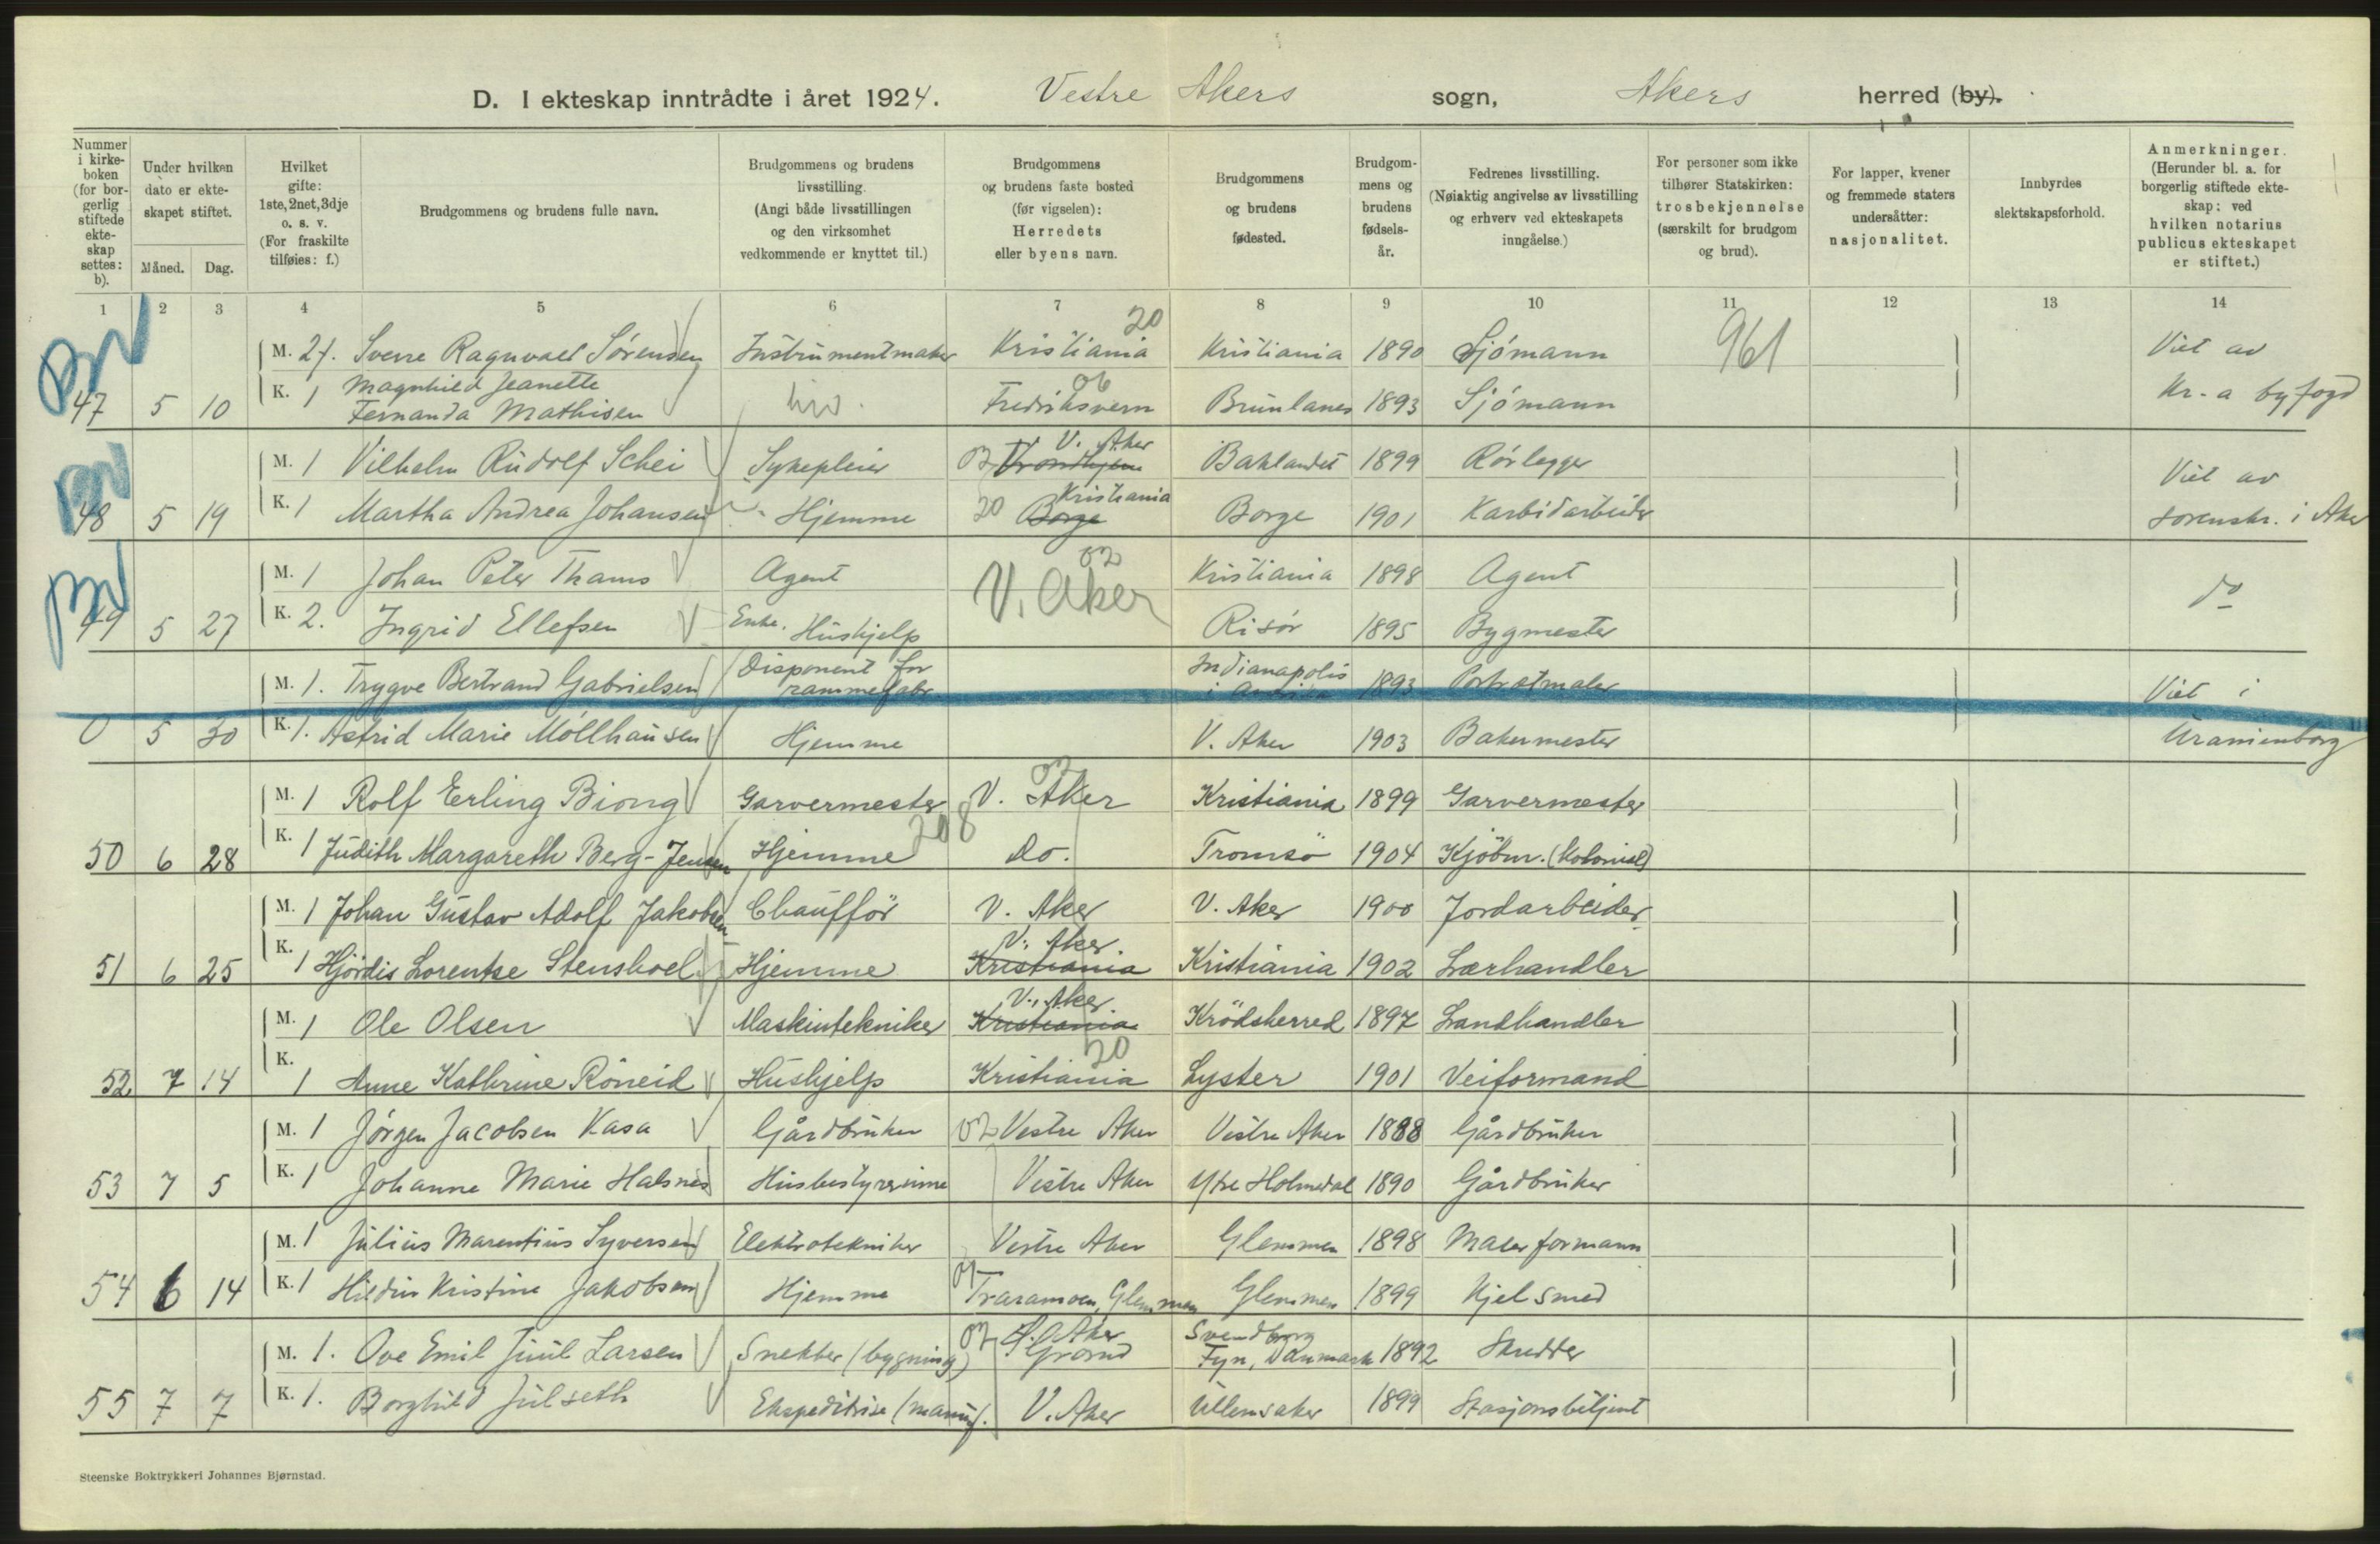 D. I ekteskap inntrådte i året 1924. Vestre Akers sogn, Akers herred (by).
Nummer i kirke-boken (for bor-gerlig stiftede ekte-skap settes: b).
Under hvilken dato er ekte-skapet stiftet.
Måned. Dag.
Hvilket gifte: 1ste, 2net, 3dje o. s. v. (For fraskilte tilføies: f.)
Brudgommens og brudens fulle navn.
Brudgommens og brudens livsstilling. (Angi både livsstillingen og den virksomhet vedkommende er knyttet til.)
Brudgommens og brudens faste bosted (før vigselen): Herredets eller byens navn.
Brudgommens og brudens fødested.
Brudgom-mens og brudens fødsels-år.
Fedrenes livsstilling. (Nøiaktig angivelse av livsstilling og erhverv ved ekteskapets inngåelse.)
For personer som ikke tilhører Statskirken: trosbekjennelse (særskilt for brudgom og brud).
For lapper, kvener og fremmede staters undersåtter: nasjonalitet.
Innbyrdes slektskapsforhold.
Anmerkninger. (Herunder bl. a. for borgerlig stiftede ekte-skap: ved hvilken notarius publicus ekteskapet er stiftet.)
1 2 3 4 5 6 7 8 9 10 11 12 13 14
20
M. 2f. Sverre Ragnvald Sörensen Instrumentmaker Kristiania Kristiania 1890 Sjömann 961 Viet av
K. 1 Magnhild Jeanette 06
47 5 10 Fernanda Mathisen Fredriksvern Brunlanes 1893 Sjömann Kr.a byfogd
V. Aker
M. 1 Vilhelm Rudolf Schei Sykepleier Trondhjem Baklandet 1899 Rörlegger Viet av
Kristiania
48 5 19 K. 1 Martha Andrea Johansen Hjemme 20 Borge Borge 1901 Karbidarbeider sorenskr. i Aker
02
M. 1 Johan Peter Thams Agent V. Aker Kristiania 1898 Agent do
49 5 27 K. 2. Ingrid Ellefsen Enke. Hushjelp Risör 1895 Bygmester
Disponent for Indianapolis
M. 1. Trygve Bertrand Gabrielsen rammefabr. 1893 Portrætmaler Viet i
0 5 30 K. 1. Astrid Marie Möllhausen Hjemme V. Aker 1903 Bakermester Uranienborg
M. 1 Rolf Erling Biong Garvermester V. Aker Kristiania 1899 Garvermester
208
50 6 28 K. 1 Judith Margareth Berg-Jensen Hjemme do. Tromsö 1904 Kjöbm. (Kolonial)
M. 1 Johan Gustav Adolf Jakobsen Chaufför V. Aker V. Aker 1900 Jordarbeider
V. Aker
51 6 25 K. 1 Hjördis Lorentse Stenshoel Hjemme Kristiania Kristiania 1902 Lærhandler
V. Aker
M. 1 Ole Olsen Maskintekniker Kristiania Krödsherred 1897 Landhandler
20
52 7 14 K. 1 Anne Kathrine Röneid Hushjelp Kristiania Lyster 1901 Veiformand
M. 1 Jörgen Jacobsen Kasa Gårdbruker 02 Vestre Aker Vestre Aker 1888 Gårdbruker
53 7 5 K. 1 Johanne Marie Halsnes Husbestyrerinne Vestre Aker Ytre Holmedal 1890 Gårdbruker
M. 1 Julius Marentius Syversen Elektrotekniker Vestre Aker Glemmen 1898 Malerformann
54 6 14 K. 1 Hildur Kristine Jakobsen Hjemme Traramoen, Glemmen Glemmen 1899 Kjelsmed
Aker Svendborg
M. 1. Ove Emil Juul Larsen Snekker (bygning) Grorud Fyn, Danmark 1892 Skredder
55 7 7 K. 1. Borghild Julseth Ekspeditrise (manuf. V. Aker Ullensaker 1899 Stasjonsbetjent
Steenske Boktrykkeri Johannes Bjørnstad.